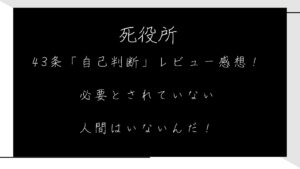 死役所
43条「自己判断」レビュー感想！
必要とされていない
人間はいないんだ！